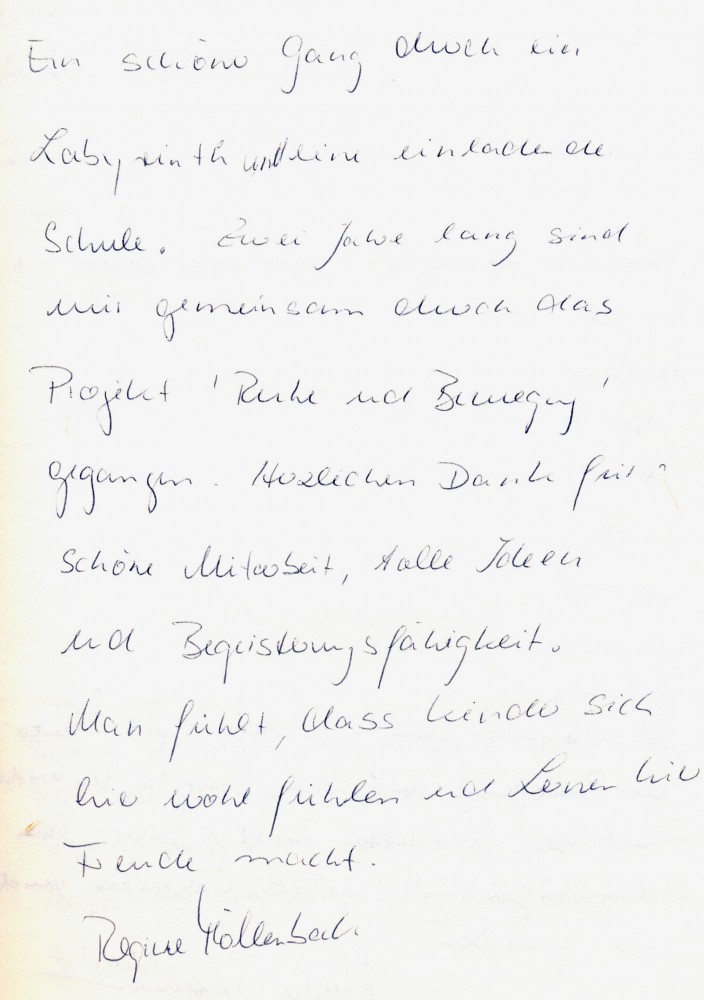 Ein schöner Gang durch ein
Labyrinth und eine einladende
Schule. Zwei Jahre lang sind
wir gemeinsam durch das
Projekt 'Ruhe und Bewegung'
gegangen. Herzlichen Dank für
schöne Mitarbeit, tolle Ideen
und Begeisterungsfähigkeit.
Man fühlt, dass Kinder sich
hier wohl fühlen und Lernen hier
Freude macht.
Regine Höllenbach